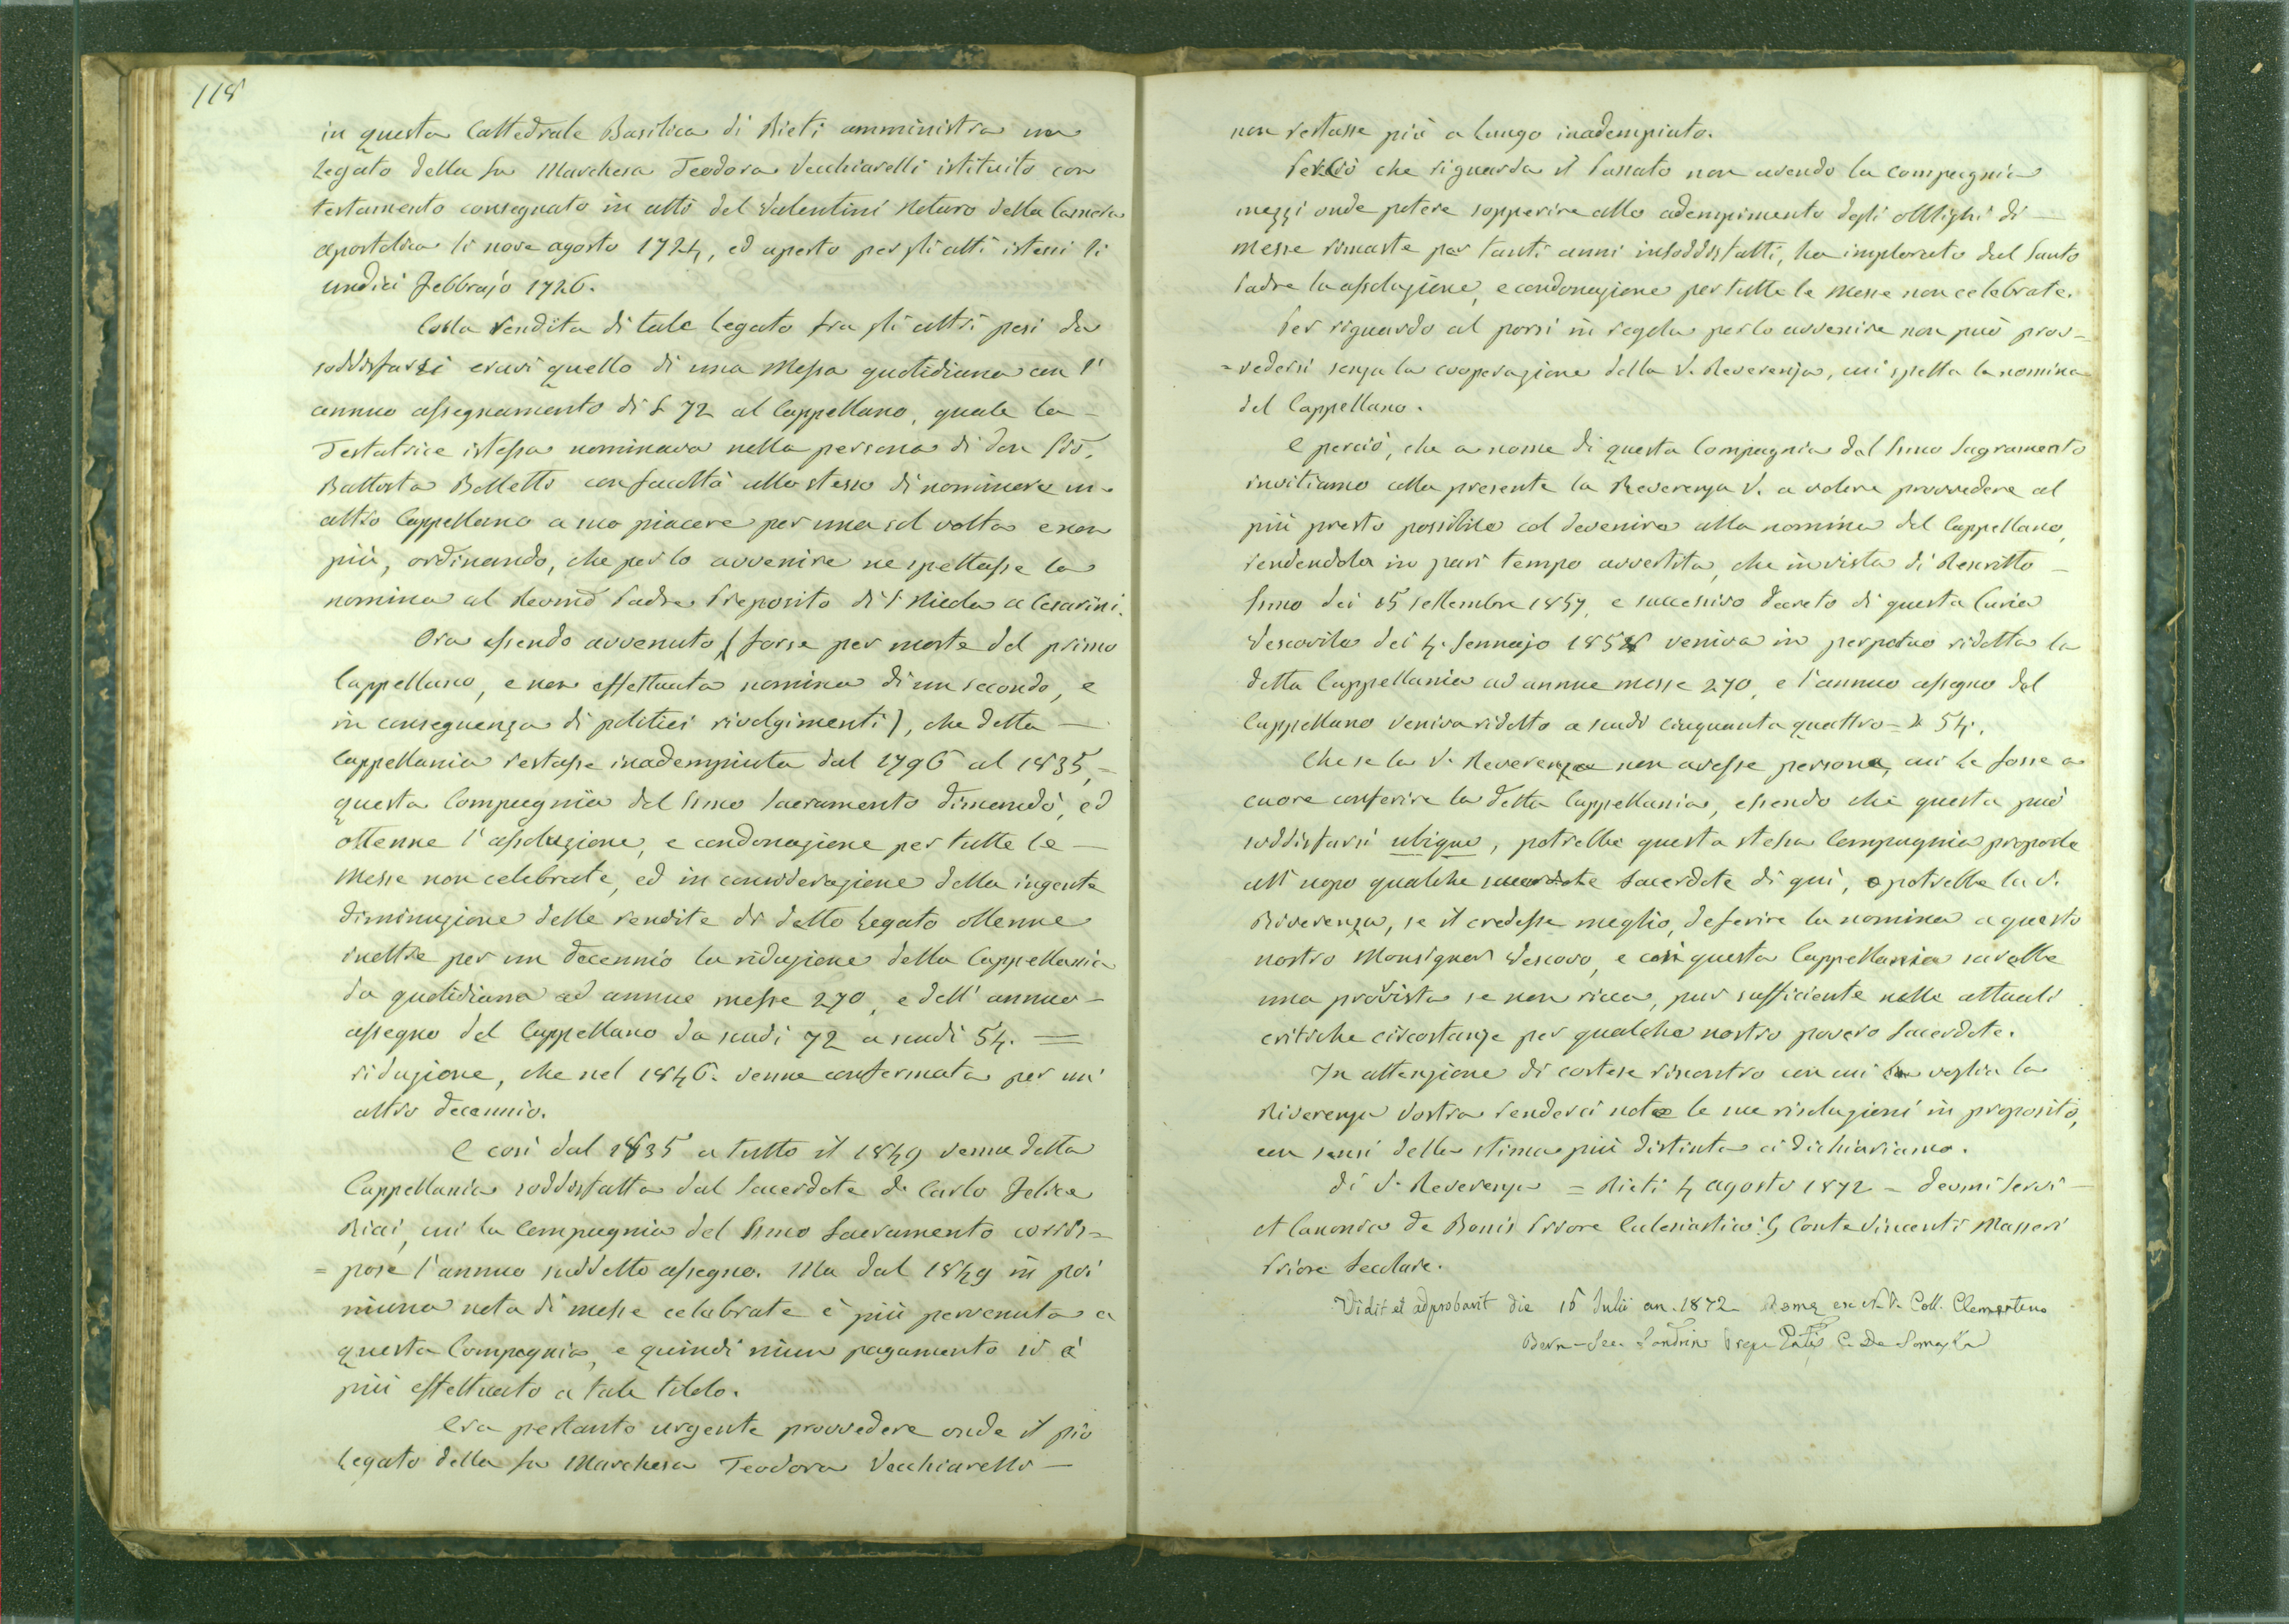 118
in questa Cattedrale Basilica di Rieti amministra un
Legato della fu Marchesa Teodora Vecchiarelli istituito con
testamento consegnato in atti del Valentini Notaro della Camera
Apostolica li nove agosto 1724, ed aperto per gli atti istessi li
undici Febbrajo 1726.
Colla rendita di tale Legato fra gli altri pesi da
soddisfarsi eravi quello di una Messa quotidiana con l'
annuo assegnamento di S 72 al Cappellano, quale la –
Testatrice istessa nominava nella persona di don Gio.
Battista Belletti con facoltà allo stesso di nominare un
altro Cappellano a suo piacere per una sol volta e non
più, ordinando, che per lo avvenire ne spettasse la
nomina al Revmo Padre Preposito di S. Nicola a Cesarini.
Ora essendo avvenuto (forse per morte del primo
Cappellano, e non effettuata nomina di un secondo, e
in conseguenza di politici rivolgimenti), che detta –
Cappellania restasse inadempiuta dal 1796 al 1835, –
questa Compagnia del Smo Sacramento dimandò, ed
ottenne l'assoluzione, e condonazione per tutte le –
Messe non celebrate, ed in considerazione della ingente
diminuzione delle rendite di detto Legato ottenne
inoltre per un decennio la riduzione della Cappellania
da quotidiana ad annue messe 270, e dell' annuo –
assegno del Cappellano da scudi 72 a scudi 54. =
riduzione, che nel 1846. venne confermata per un'
altro decennio.
E così dal 1835 a tutto il 1849 venne detta
Cappellania soddisfatta dal Sacerdote d. Carlo Felice
Ricci, cui la Compagnia del Smo Sacramento corris=
= pose l'annuo suddetto assegno. Ma dal 1849 in poi
niuna nota di messe celebrate è più pervenuta a
questa Compagnia, e quindi niun pagamento si è
più effettuato a tale titolo.
Era pertanto urgente provvedere onde il pio
Legato della fu Marchesa Teodora Vecchiarelli –
non restasse più a lungo inadempiuto.
Perciò che riguarda il passato non avendo la compagnia
mezzi onde potere sopperire allo adempimento degli obblighi di –
Messe rimaste per tanti anni insoddisfatti, ha implorato dal Santo
Padre la assoluzione, e condonazione per tutte le Messe non celebrate.
Per riguardo al porsi in regola per lo avvenire non può prov=
= vedersi senza la cooperazione della V. Reverenza, cui spetta la nomina
del Cappellano.
E perciò, che a nome di questa Compagnia del Smo Sagramento
invitiamo colla presente la Reverenza V. a volere provvedere al
più presto possibile col devenire alla nomina del Cappellano,
rendendola in pari tempo avvertita, che in vista di Rescritto –
Smo dei 15 settembre 1857, e successivo decreto di questa Curia
Vescovile dei 4. Gennajo 1858 veniva in perpetuo ridotta la
detta Cappellania ad annue messe 270, e l'annuo assegno del
Cappellano veniva ridotto a scudi cinquanta quattro = S 54.
Che se la V. Reverenza non avesse persona, cui le fosse a
cuore conferire la detta Cappellania, essendo che questa può
soddisfarsi ubique, potrebbe questa stessa Compagnia proporle
all' uopo qualche Sacerdote di quì, o potrebbe la V.
Riverenza, se il credesse meglio, deferire la nomina a questo
nostro Monsignor Vescovo, e così questa Cappellania sarebbe
una provista se non ricca, pur sufficiente nelle attuali
critiche circostanze per qualche nostro povero Sacerdote.
In attenzione di cortese riscontro con cui voglia la
Riverenza Vostra renderci note le sue risoluzioni in proposito,
con sensi della stima più distinta ci dichiariamo.
Di V. Reverenza = Rieti 4 agosto 1872 = Devmi Servi –
Canonico de Bonis Priore Eclesiastico: Conte Vincenti Masseri
Priore Secolare.
Vidit et adprobavit die 16 Julii an. 1872. Romæ ex N. V. Coll. Clementino
Bern. Sec. Sandrini C. De Somascha